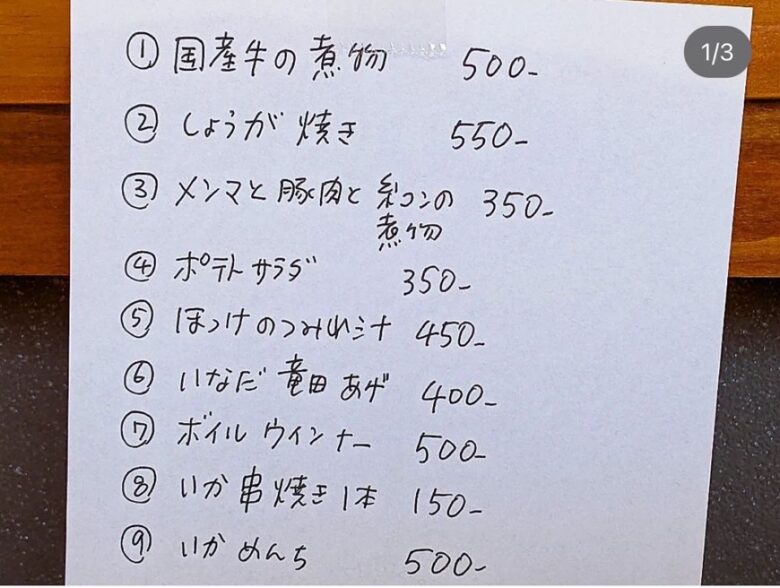 1/3
① 国産牛の煮物 500-
② しょうが焼き 550-
③ メンマと豚肉と糸コンの 350-
煮物
④ ポテトサラダ 350-
⑤ ほっけのつみれ汁 450-
⑥ いなだ竜田あげ 400-
⑦ ボイルウインナー 500-
⑧ いか串焼き1本 150-
⑨ いかめんち 500-